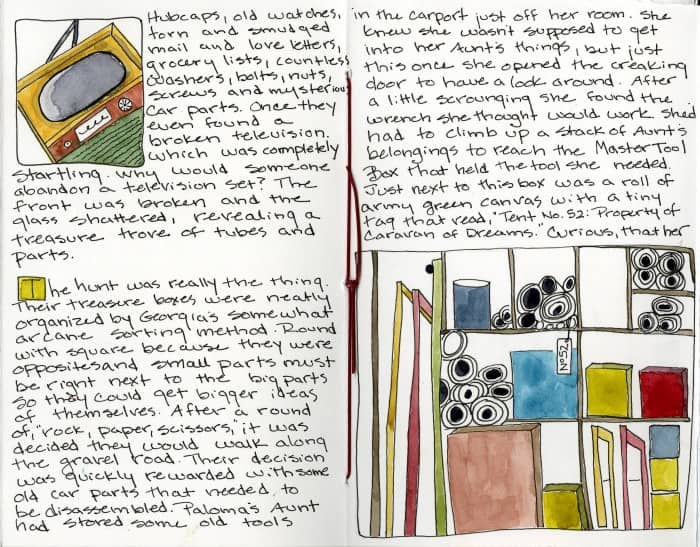 Hubcaps, old watches,
torn and smudged
mail and love letters,
grocery lists, countless
washers, bolts, nuts,
screws and mysterious
car parts. Once they
even found a
broken television.
which was completely
startling. Why would someone
abandon a television set? The
front was broken and the
glass shattered, revealing a
treasure trove of tubes and
parts.
The hunt was really the thing.
Their treasure boxes were neatly
organized by Georgia's somewhat
arcane sorting method. Round
with square because they were
opposites and small parts must
be right next to the big parts
so they could get bigger ideas
of themselves. After a round
of, "rock, paper, scissors," it was
decided they would walk along
the gravel road. Their decision
was quickly rewarded with some
old car parts that needed to
be disassembled. Paloma's Aunt
had stored some old tools
in the carport just off her room. She
knew she wasn't supposed to get
into her Aunt's things, but just
this once she opened the creaking
door to have a look around. After
a little scrounging she found the
wrench she thought would work. She'd
had to climb up a stack of Aunt's
belongings to reach the Master Tool
Box that held the tool she needed.
Just next to this box was a roll of
army green canvas with a tiny
tag that read, "Tent No. 52: Property of
Caravan of Dreams." Curious, that her
No 52